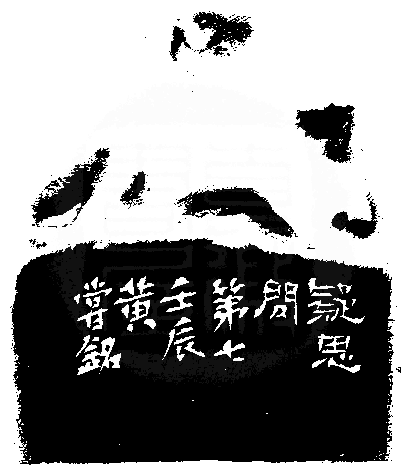 疑思
問
第七
壬辰
黃
嘗銘